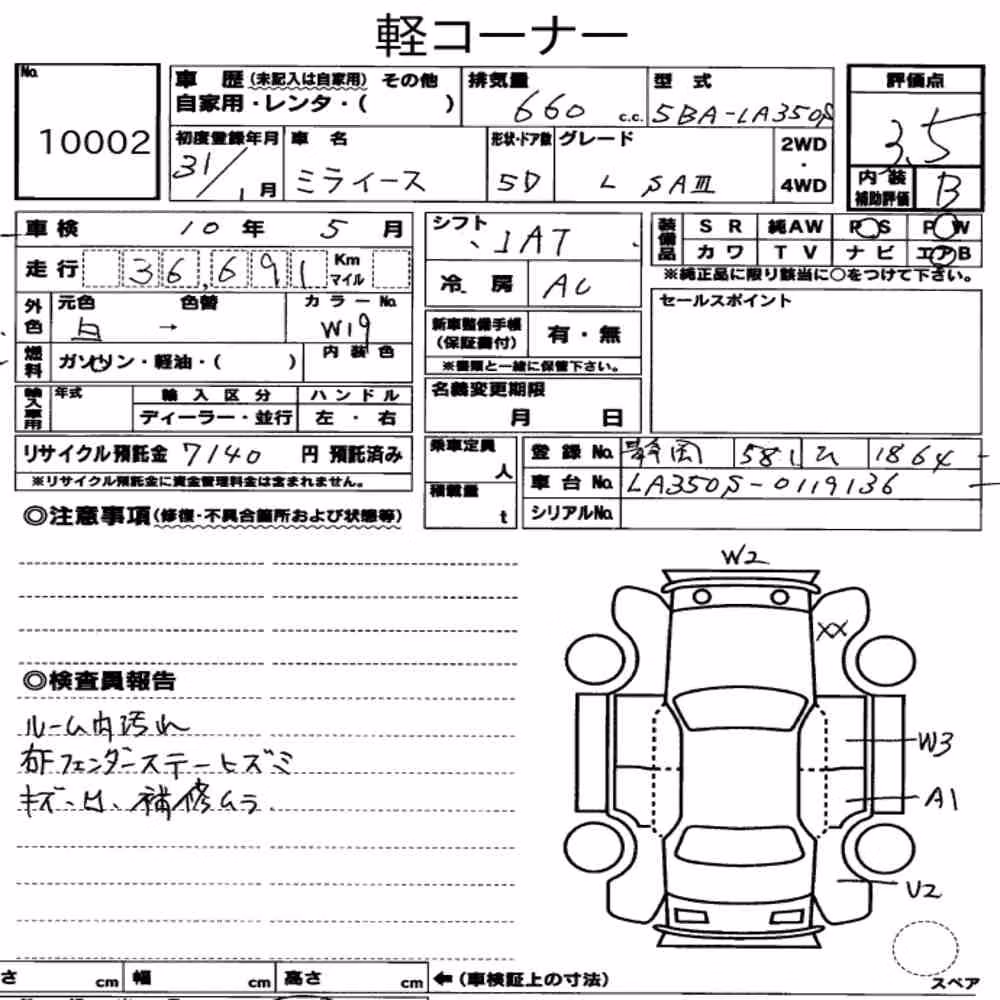 軽コーナー
No. 10002
車歴(未記入は自家用) その他
自家用・レンタ・( )
排気量 660 c.c.
型式 5BA-LA350S
評価点 3.5
内装補助評価 B
初度登録年月 31/1月
車名 ミライース
形状・ドア数 5D
グレード L SAⅢ
2WD・4WD
車検 10年 5月
走行 36,691 Km マイル
外色 元色 白 → 色替
カラーNo. W19
燃料 ガソリン・軽油・( )
内装色
輸入車用 年式 輸入区分 ハンドル
ディーラー・並行 左・右
リサイクル預託金 7140 円 預託済み
※リサイクル預託金に資金管理料金は含まれません。
シフト IAT
冷房 AC
新車整備手帳(保証書付) 有・無
※書類と一緒に保管下さい。
名義変更期限
月 日
乗車定員 人
積載量 t
装備品 SR 純AW PS PW
カワ TV ナビ エアB
※純正品に限り該当に○をつけて下さい。
セールスポイント
登録No. 静岡 581 ひ 1864
車台No. LA350S-0119136
シリアルNo.
◎注意事項(修復・不具合箇所および状態等)
◎検査員報告
ルーム内汚れ
右Fフェンダーステーヒズミ
キズ、凹、補修ムラ
W2
XX
W3
A1
U2
スペア
さ cm 幅 cm 高さ cm ←(車検証上の寸法)